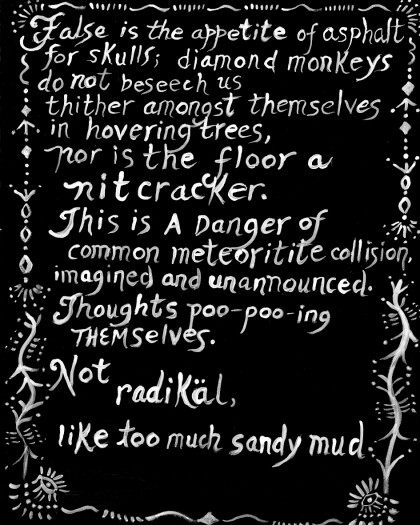 False is the appetite of asphalt
for skulls; diamond monkeys
do not beseech us
thither amongst themselves
in hovering trees,
nor is the floor a
nitcracker.
This is A Danger of
common meteoritite collision,
imagined and unannounced.
Thoughts poo-poo-ing
THEMSelves.
Not
radiKäl,
like too much sandy mud.